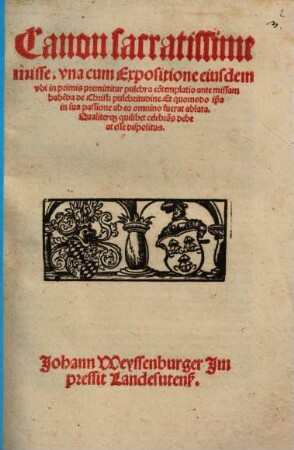 2
Canon sacratissime
misse. vna cum Expositione eiusdem
vbi in primis premittitur pulchra cõtemplatio ante missam
habẽda de Christi pulchritudine. Et quomodo ip̃a
in sua passione ab eo omnino fuerat ablata.
Qualiterqꝫ quilibet celebrãs debe
at esse dispositus.
Johann Weyssenburger Im
pressit Landesutenṣ.